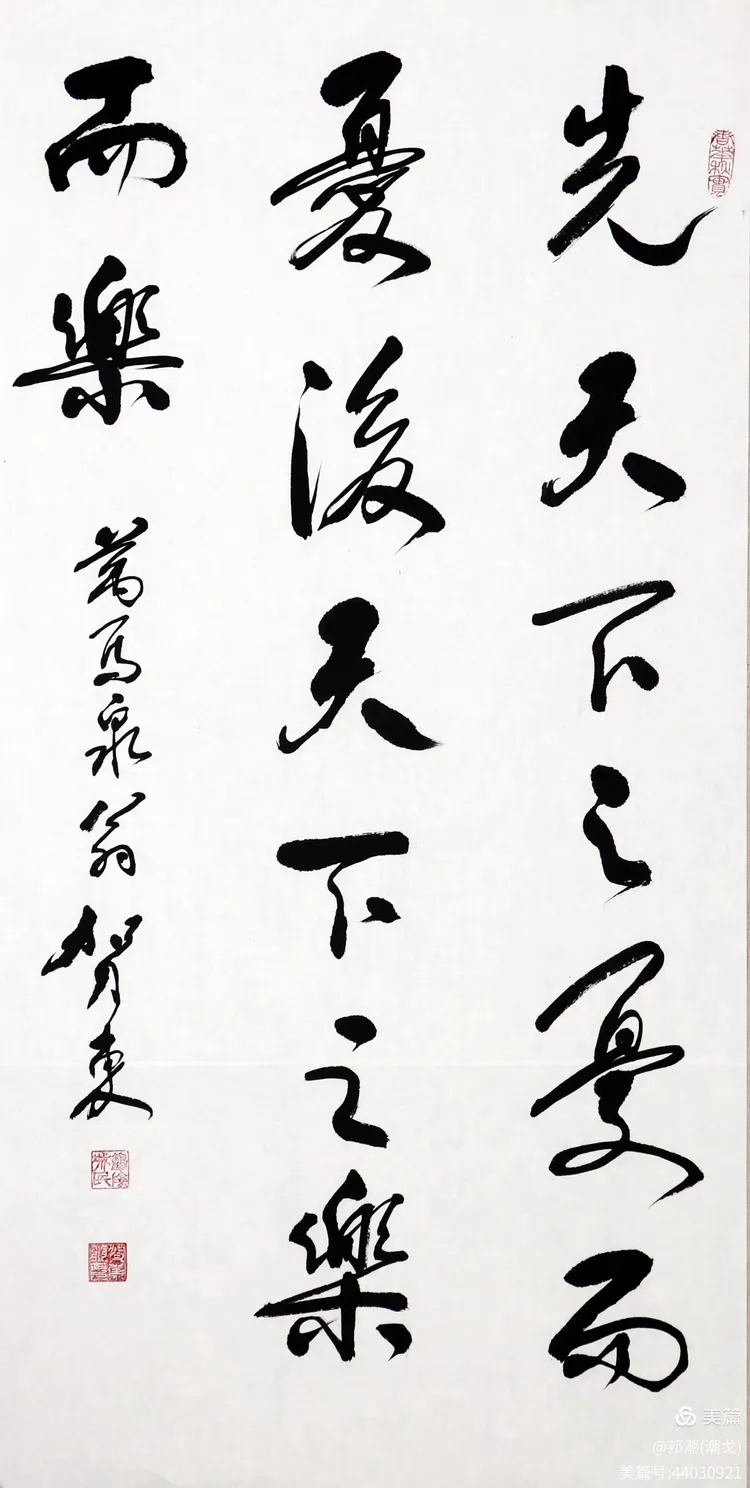 先天下之憂而
憂後天下之樂
而樂 萬馬泉翁賀東
美篇
@邦潮(潮戈)
美篇号:44030921